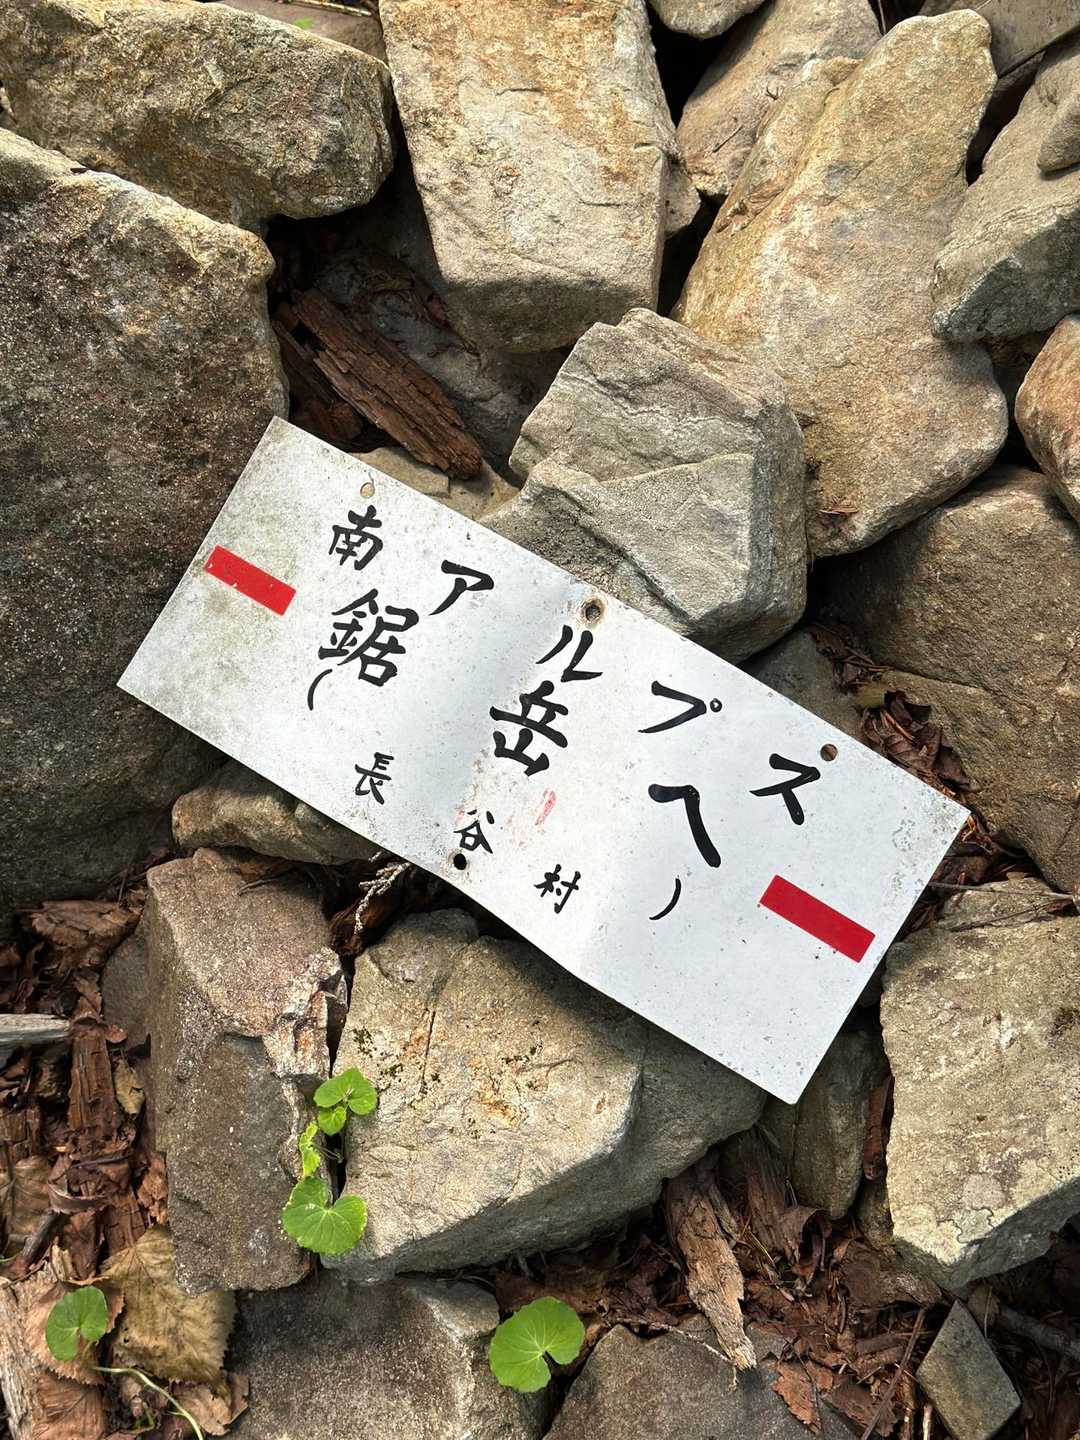 南アルプス
鋸岳へ
(長谷村)